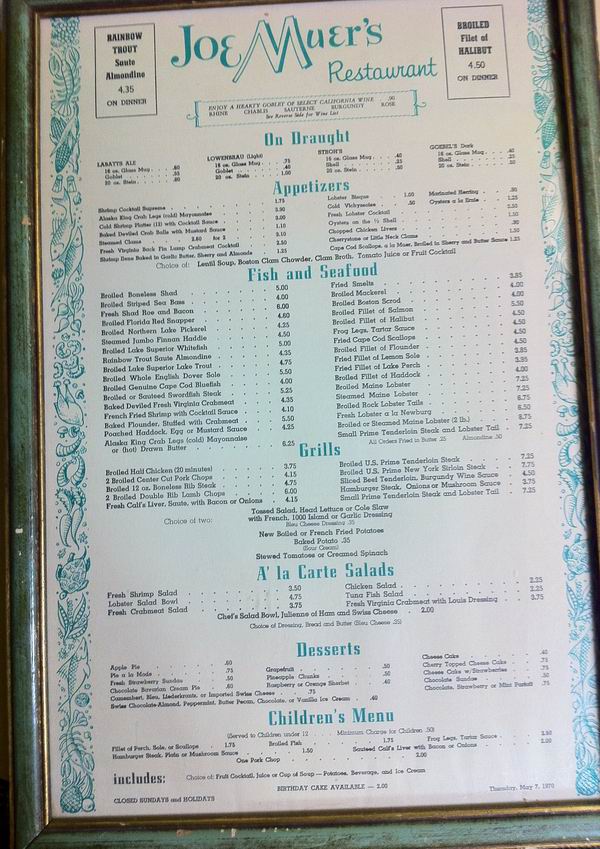 RAINBOW
TROUT
Saute
Almondine
4.35
ON DINNER
Joe Muer's
Restaurant
BROILED
Filet of
HALIBUT
4.50
ON DINNER
ENJOY A HEARTY GOBLET OF SELECT CALIFORNIA WINE .90
RHINE CHABLIS SAUTERNE BURGUNDY ROSE
See Reverse Side for Wine List
On Draught
LABATTS ALE
16 oz. Glass Mug .60
Goblet
20 oz. Stein .80
LOWENBRAU (Light)
16 oz. Glass Mug .75
Goblet .40
20 oz. Stein 1.00
STROH'S
16 oz. Glass Mug .40
Shell .25
20 oz. Stein .50
GOEBEL'S Dark
16 oz. Glass Mug .40
Shell .25
20 oz. Stein .50
Appetizers
Shrimp Cocktail Supreme 1.75
Alaska King Crab Legs (cold) Mayonnaise
Cold Shrimp Platter (12) with Cocktail Sauce
Baked Deviled Crab Balls with Mustard Sauce
Steamed Clams
Fresh Virginia Back Fin Lump Crabmeat Cocktail
Shrimp Dens Baked in Garlic Butter, Sherry and Almonds
Lobster Bisque 1.00
Cold Vichyssoise .50
Fresh Lobster Cocktail
Oysters on the ½ Shell
Chopped Chicken Livers
Cherrystone or Little Neck Clams
Cape Cod Scallops, a la Muer, Broiled in Sherry and Butter Sauce 1.25
Marinated Herring
Oysters a la Ernie
Choice of: Lentil Soup, Boston Clam Chowder, Clam Broth, Tomato Juice or Fruit Cocktail
Fish and Seafood
Broiled Boneless Shad 5.00
Broiled Striped Sea Bass 4.00
Fresh Shad Roe and Bacon 6.00
Broiled Florida Red Snapper 4.60
Broiled Northern Lake Pickerel 4.25
Steamed Jumbo Finnan Haddie 4.50
Broiled Lake Superior Whitefish 5.00
Rainbow Trout Saute Almondine 4.35
Broiled Lake Superior Lake Trout 4.75
Broiled Whole English Dover Sole 5.50
Broiled Genuine Cape Cod Bluefish 4.00
Broiled or Sauteed Swordfish Steak 5.25
Baked Deviled Fresh Virginia Crabmeat 4.35
French Fried Shrimp with Cocktail Sauce 4.10
Baked Flounder, Stuffed with Crabmeat 5.50
Poached Haddock, Egg or Mustard Sauce 4.25
Alaska King Crab Legs (cold) Mayonnaise
or (hot) Drawn Butter 6.25
Fried Smelts 3.85
Broiled Mackerel 4.00
Broiled Boston Scrod 4.00
Broiled Filet of Salmon 5.50
Broiled Filet of Halibut 4.50
Frog Legs, Tartar Sauce 4.50
Fried Cape Cod Scallops 4.50
Broiled Filet of Flounder 4.50
Fried Filet of Lemon Sole 3.85
Fried Filet of Lake Perch 3.85
Broiled Filet of Haddock 4.00
Broiled Maine Lobster 7.25
Steamed Maine Lobster 7.25
Broiled Rock Lobster Tails 6.75
Fresh Lobster a la Newburg 6.50
Broiled or Steamed Maine Lobster (2 lb.) 8.75
Small Prime Tenderloin Steak and Lobster Tail 7.25
All Orders Fried in Butter .25 Almondine .50
Grills
Broiled Half Chicken (20 minutes) 3.75
2 Broiled Center Cut Pork Chops 4.15
Broiled 12 oz. Boneless Rib Steak 4.75
2 Broiled Double Rib Lamb Chops 6.00
Fresh Calf's Liver, Saute, with Bacon or Onions 4.15
Broiled U.S. Prime Tenderloin Steak 7.25
Broiled U.S. Prime New York Sirloin Steak 7.75
Sliced Beef Tenderloin, Burgundy Wine Sauce 4.50
Hamburger Steak, Onions or Mushroom Sauce 3.75
Small Prime Tenderloin Steak and Lobster Tail 7.25
Choice of two:
Tossed Salad, Head Lettuce or Cole Slaw
with French, 1000 Island or Garlic Dressing
Bleu Cheese Dressing .35
New Boiled or French Fried Potatoes
Baked Potato .35
(Sour Cream)
Stewed Tomatoes or Creamed Spinach
A' la Carte Salads
Fresh Shrimp Salad 3.50
Lobster Salad Bowl 4.75
Fresh Crabmeat Salad 3.75
Chicken Salad 2.25
Tuna Fish Salad 2.25
Fresh Virginia Crabmeat with Louis Dressing 3.75
Chef's Salad Bowl, Julienne of Ham and Swiss Cheese 2.00
Choice of Dressing, Bread and Butter (Bleu Cheese .35)
Desserts
Apple Pie .60
Pie a la Mode .75
Fresh Strawberry Sundae .50
Chocolate Bavarian Cream Pie .60
Camembert, Bleu, Liederkrantz, or Imported Swiss Cheese .75
Swiss Chocolate-Almond, Peppermint, Butter Pecan, Chocolate, or Vanilla Ice Cream .40
Grapefruit .50
Pineapple Chunks .50
Raspberry or Orange Sherbet .40
Cheese Cake
Cherry Topped Cheese Cake .75
Cheese Cake w/Strawberries
Chocolate Sundae .50
Chocolate, Strawberry or Mint Parfait .75
Children's Menu
(Served to Children under 12 Minimum Charge for Children .50)
Fillet of Perch, Sole, or Scallops 1.75
Broiled Fish 1.75
Frog Legs, Tartar Sauce
Hamburger Steak, Plain or Mushroom Sauce 1.50
Sauteed Calf's Liver with Bacon or Onions 2.00
One Pork Chop 2.00
includes:
Choice of: Fruit Cocktail, Juice or Cup of Soup — Potatoes, Beverage, and Ice Cream
BIRTHDAY CAKE AVAILABLE — 2.00
CLOSED SUNDAYS and HOLIDAYS
Thursday, May 7, 1970